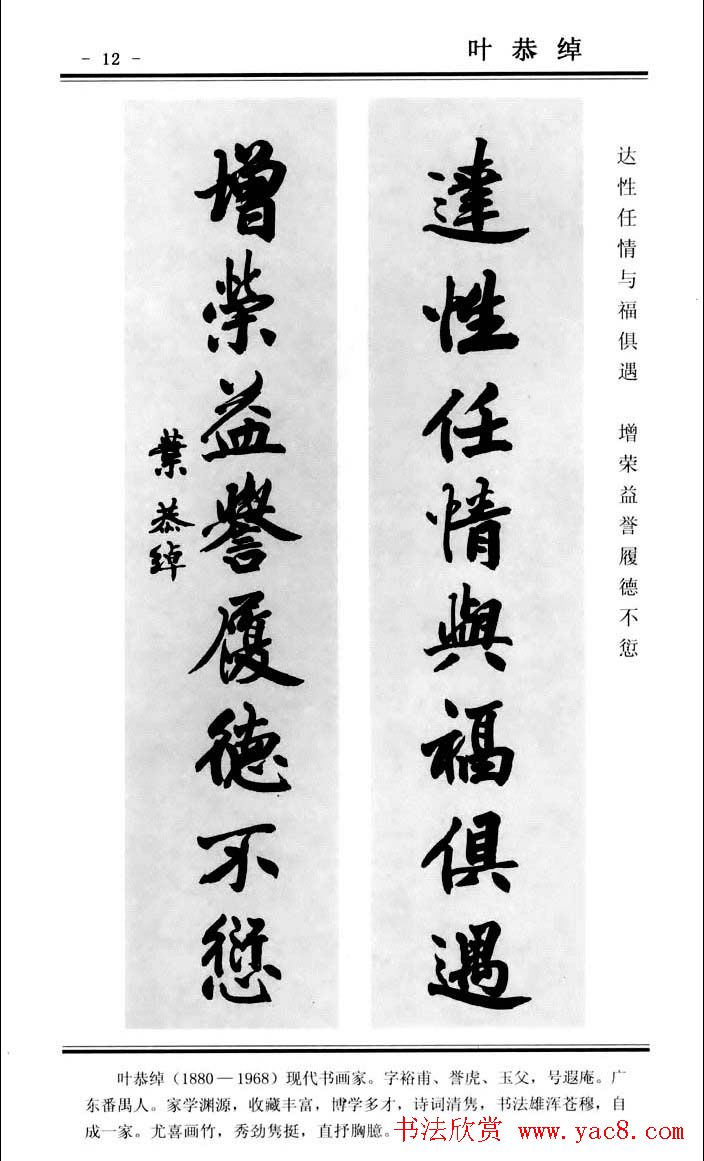 - 12 -
叶恭绰
达性任情与福俱遇 增荣益誉履德不愆
達性任情與福俱遇
增榮益譽履德不愆
葉恭綽
叶恭绰（1880—1968）现代书画家。字裕甫、誉虎、玉父，号遐庵。广
东番禺人。家学渊源，收藏丰富，博学多才，诗词清隽，书法雄浑苍穆，自
成一家。尤喜画竹，秀劲隽挺，直抒胸臆。
书法欣赏 www.yac8.com